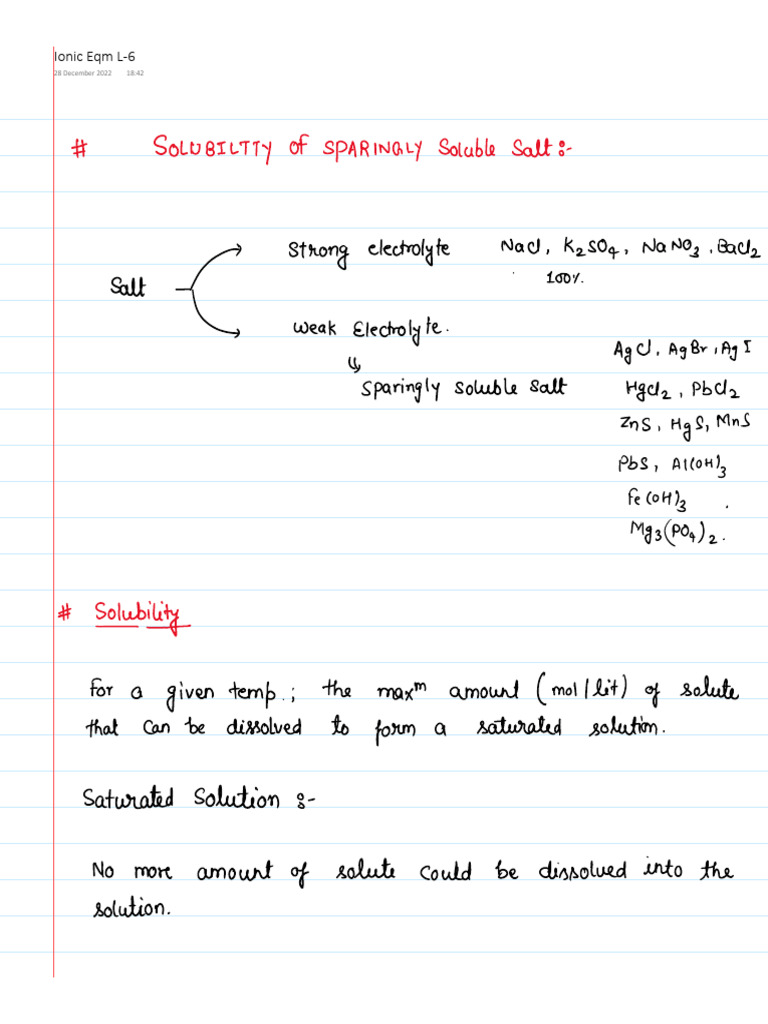 Ionic Eqm L-6
28 December 2022 18:42
# SOLUBILITY OF SPARINGLY Soluble Salt :-
Strong electrolyte NaCl, K2SO4, NaNO3, BaCl2
100%.
Salt
Weak Electrolyte.
AgCl, AgBr, AgI
Sparingly soluble salt HgCl2, PbCl2
ZnS, HgS, MnS
PbS, Al(OH)3
Fe(OH)3
Mg3(PO4)2.
# Solubility
For a given temp.; the maxm amount (mol/lit) of solute
that can be dissolved to form a saturated solution.
Saturated Solution :-
No more amount of solute could be dissolved into the
solution.